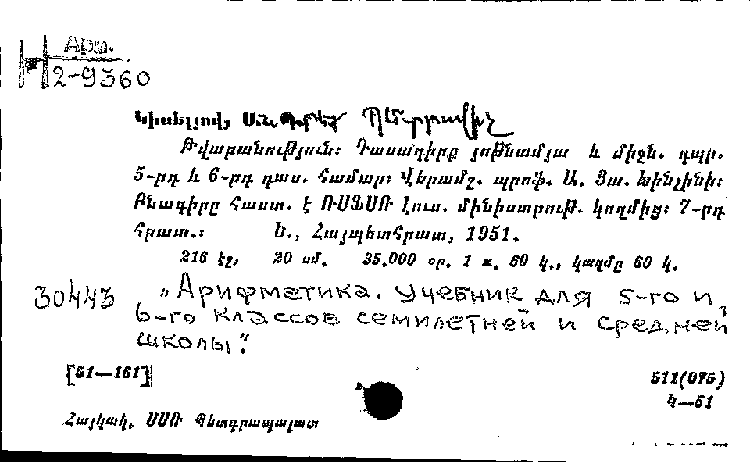 Արտ.
2-9360
Կիսելյով, Անդրեյ Պետրովիչ
Թվաբանություն: Դասագիրք յոթնամյա և միջն. դպր.
5-րդ և 6-րդ դաս. համար: Վերամշ. պրոֆ. Ա. Յա. Խինչինի:
Բնագիրը հաստ. է ՌՍՖՍՌ լուս. մինիստրութ. կողմից: 7-րդ
հրատ.: Ե., Հայպետհրատ, 1951.
216 էջ, 20 սմ. 35.000 օր. 1 ռ. 60 կ., կազմը 60 կ.
30443 „Арифметика. Учебник для 5-го и
6-го классов семилетней и средней
школы."
[51—161] 511(075)
Կ—51
Հայկակ. ՍՍՌ Պետգրապալատ